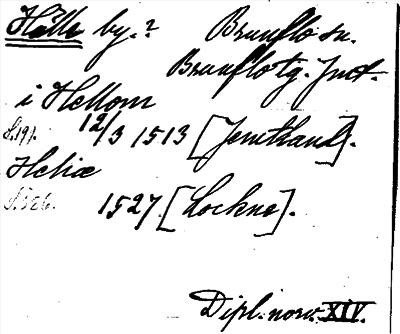 Hälle by.? Brunflo sn.
Brunflo tg. Jmt.
i Hellom
S.191. 12/3 1513 [Jemthand].
Heliæ
S.526. 1527 [Lockne].
Dipl. norv. XIV.